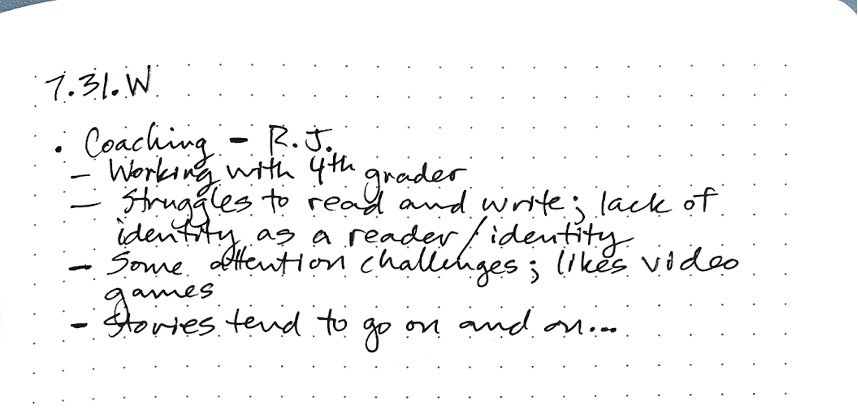 7.31.W
• Coaching - R.J.
- Working with 4th grader
- Struggles to read and write; lack of
identity as a reader/identity
- Some attention challenges; likes video
games
- Stories tend to go on and on...